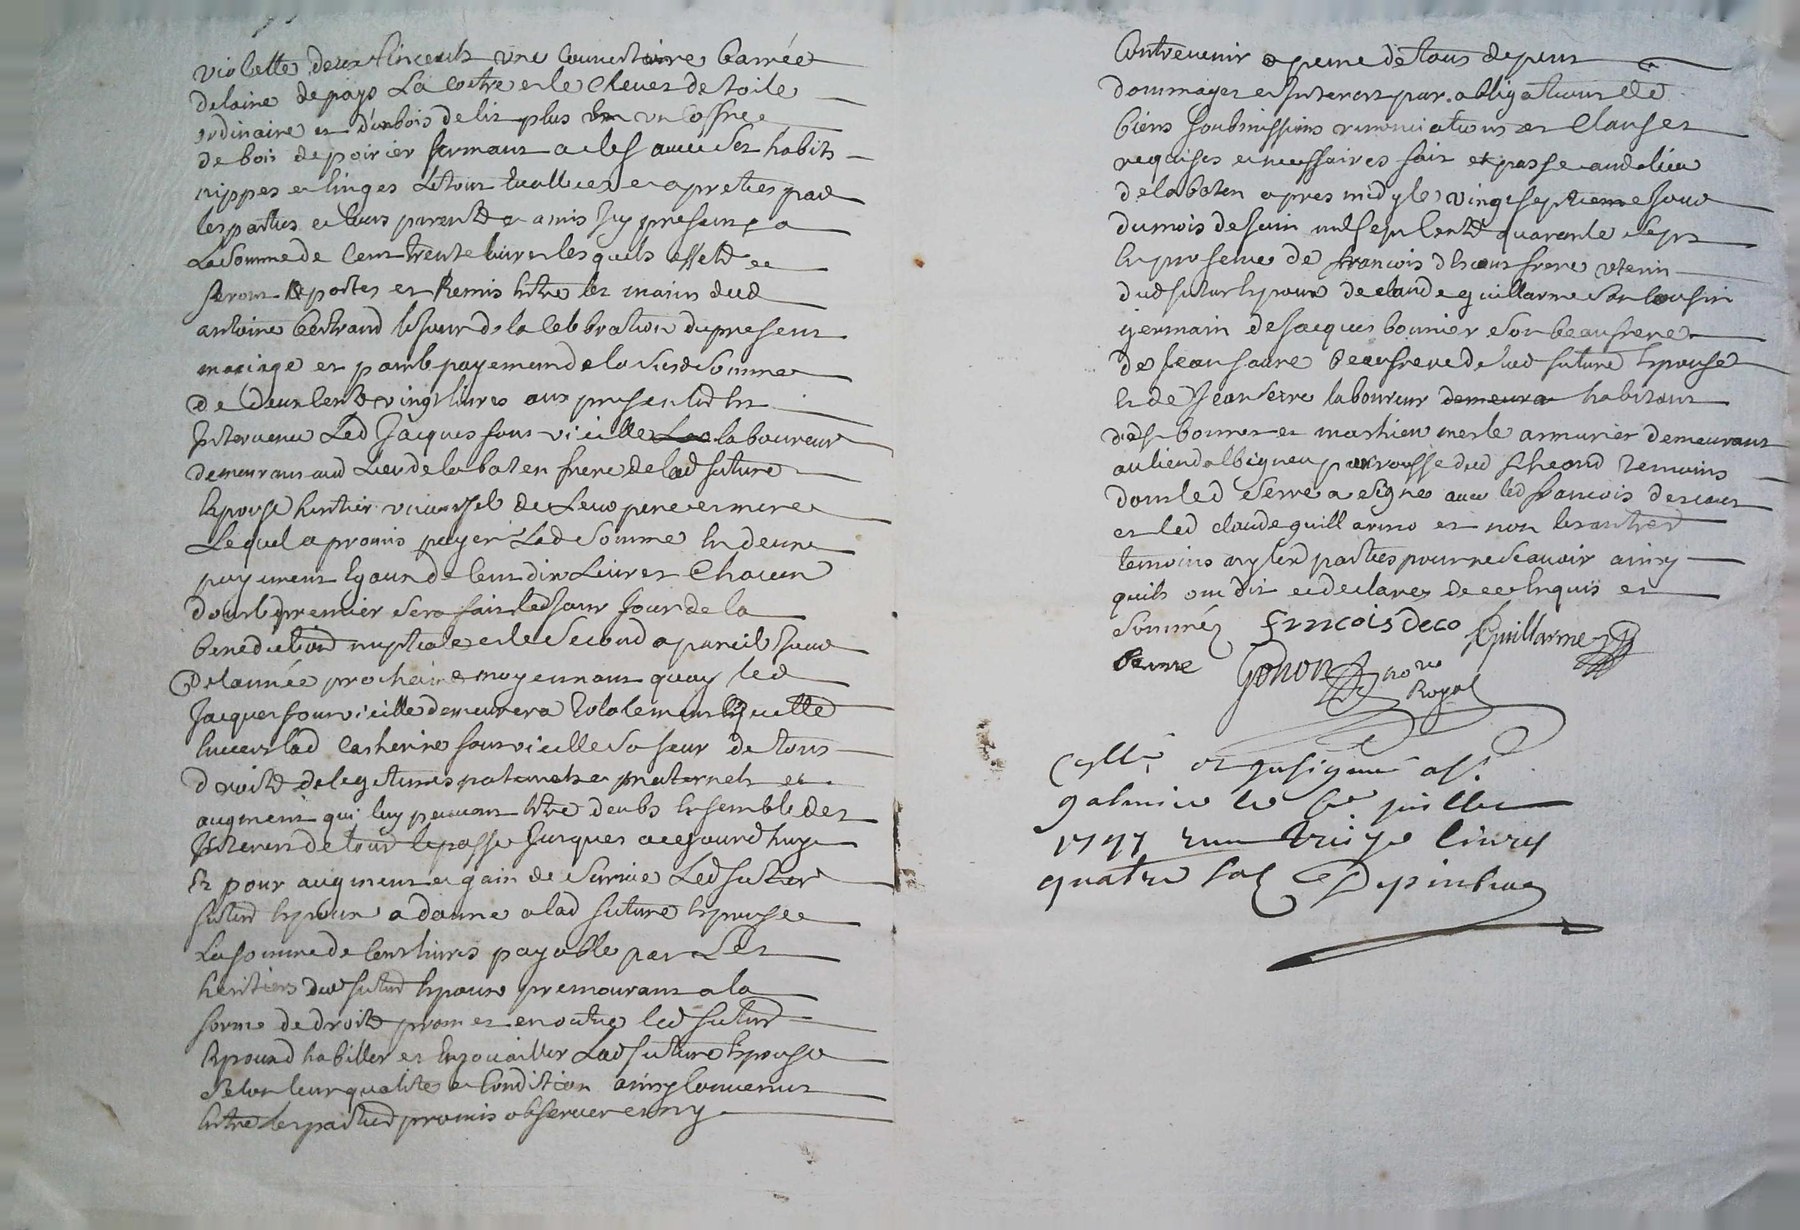 violette deux linceuls une couverture barrée
de laine de pays La coitre et le chevet de toile
ordinaire et d'un bois de lit plus un coffre
de bois de poirier fermant a clef avec ses habits
nippes et linges Le tout Evallues et apreties par
les parties et leurs parents et amis Icy presents a
La Somme de Cent trente livres lesquels effets
seront portes et Remis Entre les mains dud
antoine Bertrand le Jour de la Celebration du present
mariage et pour le payement de la Susd Somme
de deux Cents vingt livres aux presentes Est
Intervenu Led Jacques fourvieille laboureur
demeurant aud Lieu de la baten frere de lad future
Epouse heritier universel de Leurs pere et mere
Lequel a promis payer Lad Somme En deux
payements Egaux de Cent dix Livres Chacun
dont le premier sera fait led Jour de la
benediction nuptiale et le Second a pareil Jour
de lannée prochaine moyennant quoy led
Jacques fourvieille demeurera totalement quitte
Envers lad Catherine fourvieille sa seur de tous
droits de legitimes paternels et maternels et
augment qui luy peuvent Etre deubs Ensemble des
Interets de tout le passe Jusques a cejourdhuy
Et pour augment et gain de Survie Led
futur Epoux a donne a lad future Epouse
La somme de Cent livres payable par Les
heritiers dud futur Epoux premourant a la
forme de droits promet en outre led futur
Epoux habiller et Enjouailler Lad future Epouse
selon leur qualité et Condition ainsy Convenus
Entre les parties promis observer et ny
Contrevenir a peine de tous depens
dommages et Interets par obligations de
biens Soubmissions renonciations et Clauses
requises et necessaires fait et passe aud lieu
de la baten apres midy le vingt septieme Jour
du mois de Juin mil sept Cents quarante sept
En presence de francois descour frere uterin
dud futur Epoux de claude guillarme son Cousin
germain de Jacques bonnier son beaufrere
de Jean faure beaufrere de lad future Epouse
Et de Jean serre laboureur habitant
et mathieu merle armurier demeurant
au lieu parroisse dud temoins
dont led Serre a signé avec led francois descour
et led claude guillarme et non les autres
temoins ny les parties pour ne scavoir ainsy
quils ont dit et declarez de ce Enquis et
Sommés francois deco Guillarme
Serre Gonon no.re
Royal
Collé. et Insinué a St.
galmier le juillet
1747 Recu treize livres
quatre sols